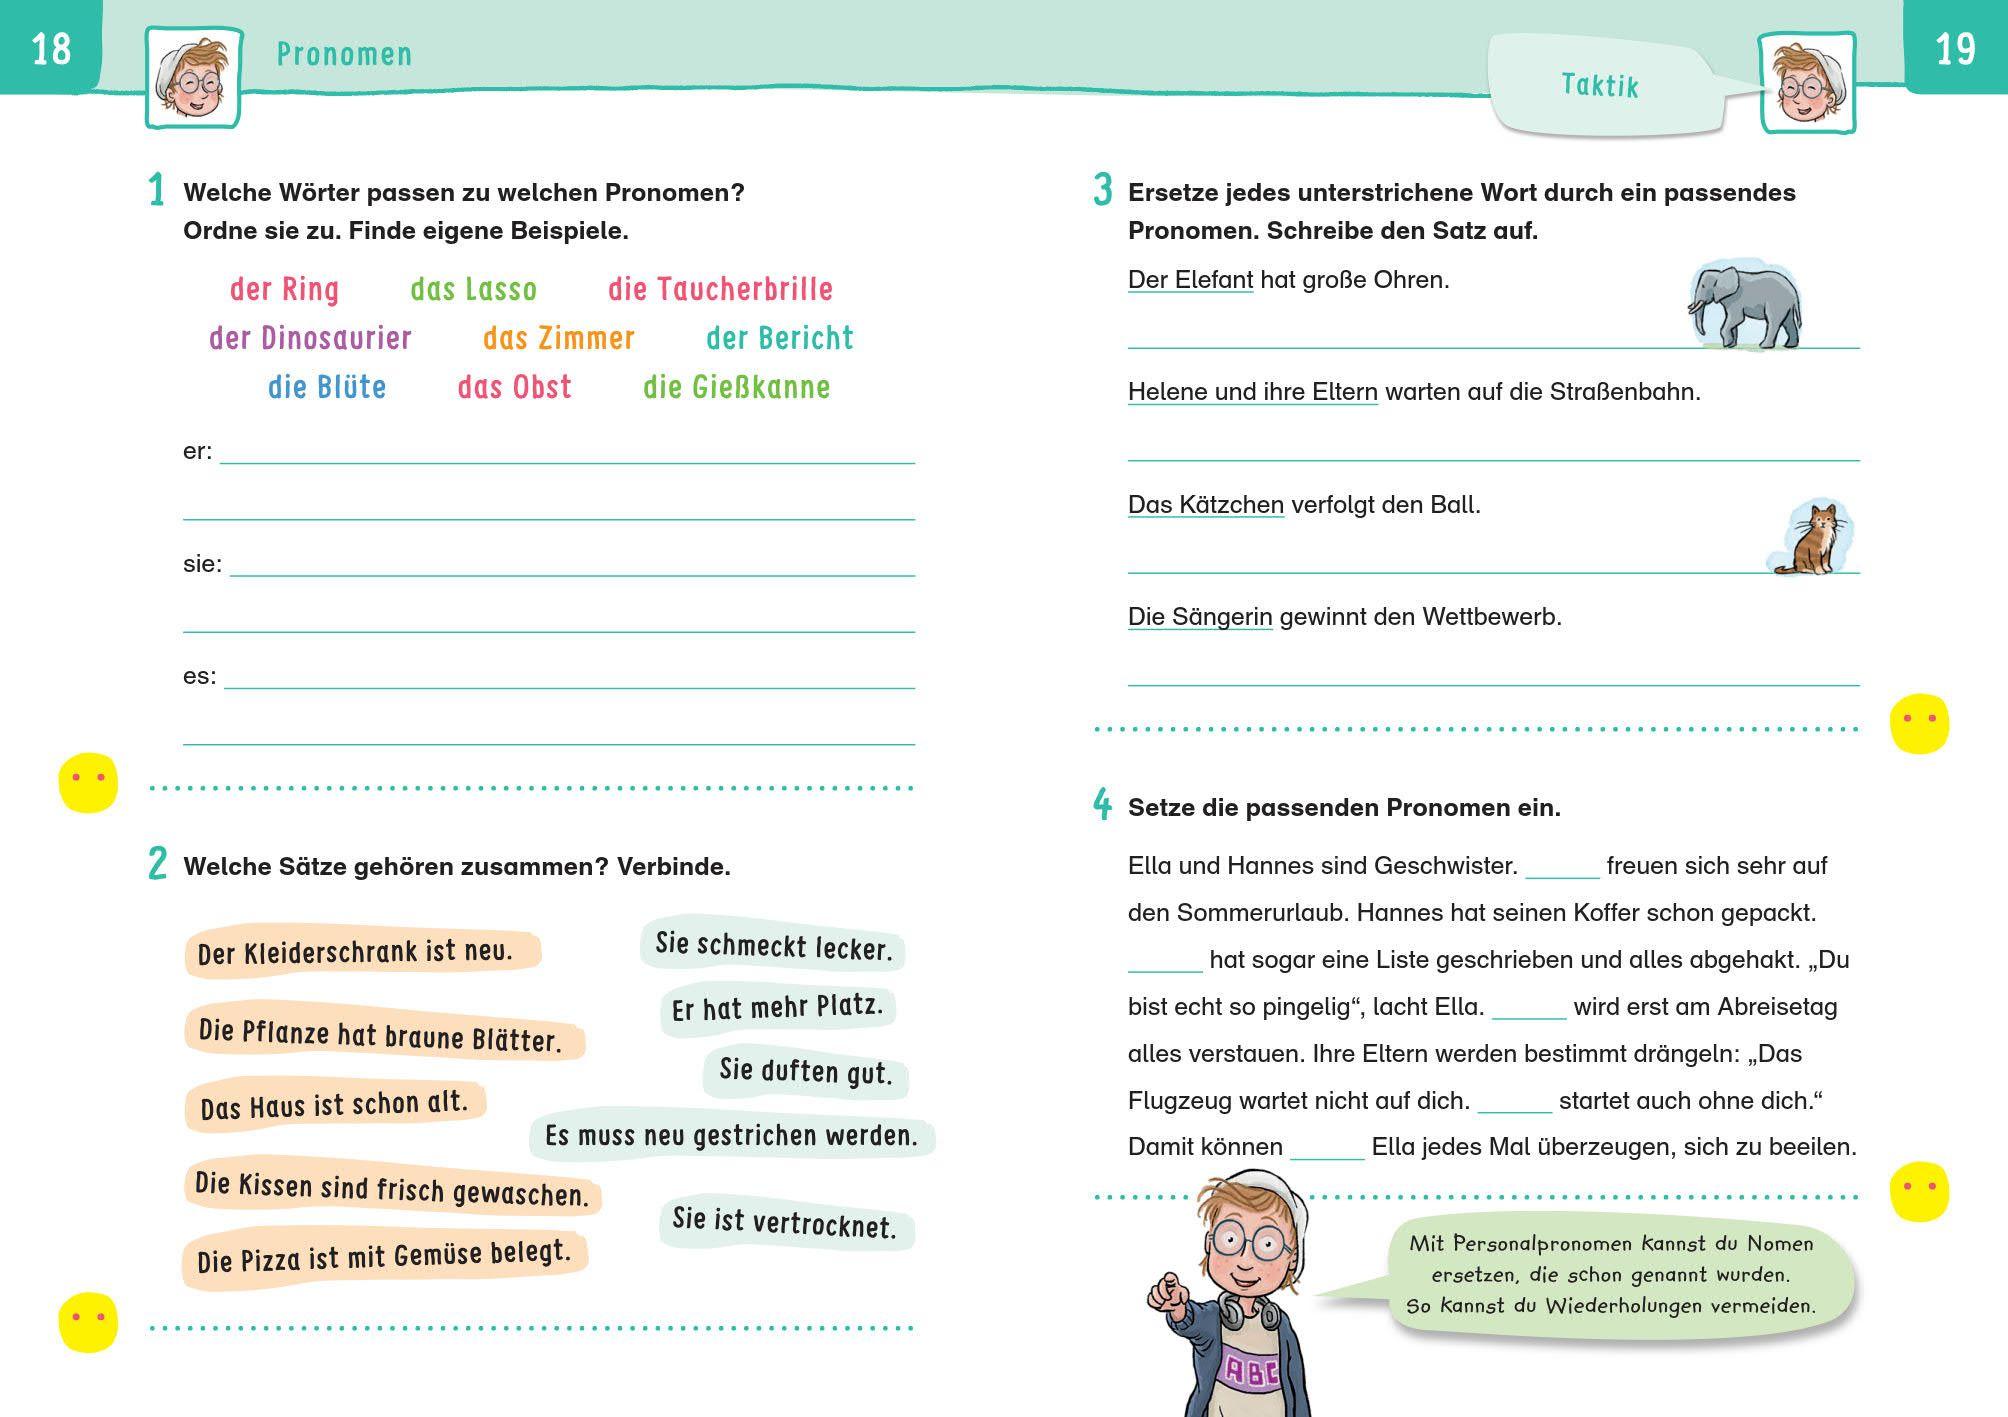 18
Pronomen
1 Welche Wörter passen zu welchen Pronomen?
Ordne sie zu. Finde eigene Beispiele.
der Ring das Lasso die Taucherbrille
der Dinosaurier das Zimmer der Bericht
die Blüte das Obst die Gießkanne
er:
sie:
es:
2 Welche Sätze gehören zusammen? Verbinde.
Der Kleiderschrank ist neu.
Die Pflanze hat braune Blätter.
Das Haus ist schon alt.
Die Kissen sind frisch gewaschen.
Die Pizza ist mit Gemüse belegt.
Sie schmeckt lecker.
Er hat mehr Platz.
Sie duften gut.
Es muss neu gestrichen werden.
Sie ist vertrocknet.
Taktik
19
3 Ersetze jedes unterstrichene Wort durch ein passendes
Pronomen. Schreibe den Satz auf.
Der Elefant hat große Ohren.
Helene und ihre Eltern warten auf die Straßenbahn.
Das Kätzchen verfolgt den Ball.
Die Sängerin gewinnt den Wettbewerb.
4 Setze die passenden Pronomen ein.
Ella und Hannes sind Geschwister. ______ freuen sich sehr auf
den Sommerurlaub. Hannes hat seinen Koffer schon gepackt.
______ hat sogar eine Liste geschrieben und alles abgehakt. „Du
bist echt so pingelig“, lacht Ella. ______ wird erst am Abreisetag
alles verstauen. Ihre Eltern werden bestimmt drängeln: „Das
Flugzeug wartet nicht auf dich. ______ startet auch ohne dich.“
Damit können ______ Ella jedes Mal überzeugen, sich zu beeilen.
Mit Personalpronomen kannst du Nomen
ersetzen, die schon genannt wurden.
So kannst du Wiederholungen vermeiden.
ABC